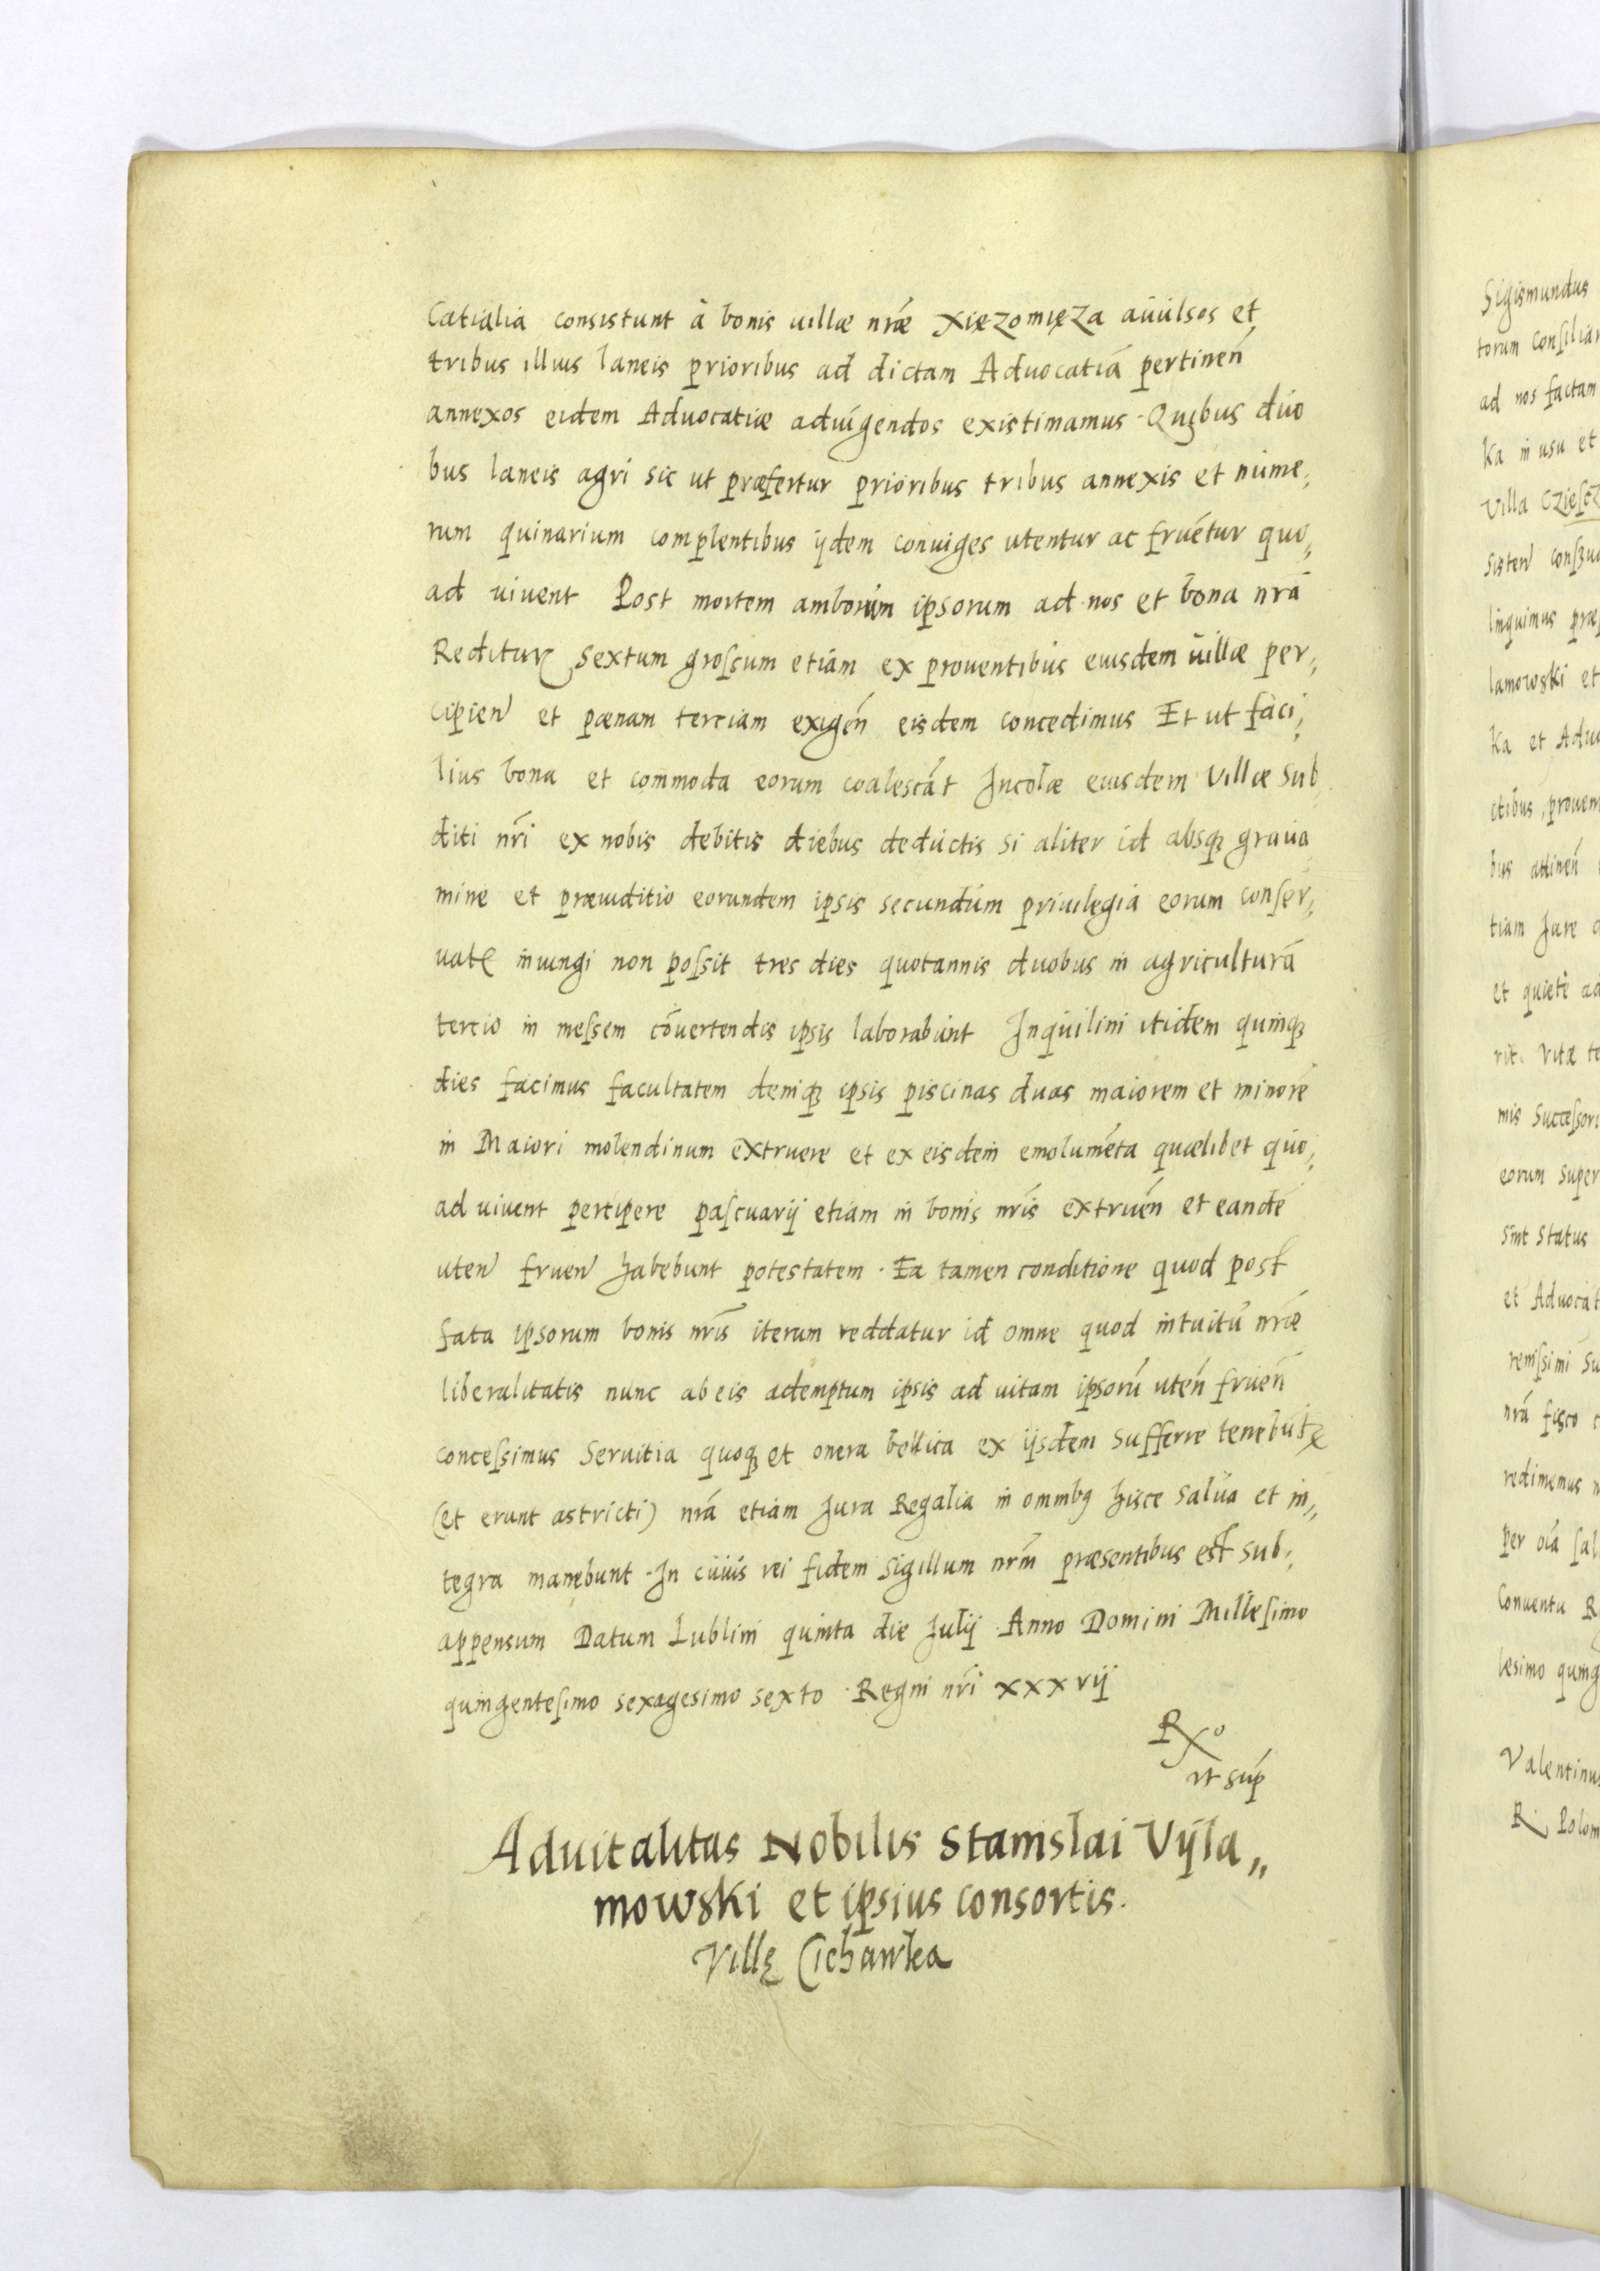 Catialia consistunt à bonis villæ nræ Xięzomięza avulsos et
tribus illius laneis prioribus ad dictam Advocatiā pertineñ
annexos eidem Advocatiæ adiugendos existimamus. Quibus duo
bus laneis agri sic ut præfertur prioribus tribus annexis et nume,
rum quinarium complentibus ijdem coniuges utentur ac fruētur quo,
ad vivent Post mortem amborum ipsorum ad nos et bona nrā
Reditur Sextum grossum etiam ex proventibus eiusdem villæ per,
cipieñ et pænam terciam exigeñ eisdem concedimus Et ut faci,
lius bona et commoda eorum coalescāt Incolæ eiusdem villæ sub
diti nri ex nobis debitis diebus deductis si aliter id absq; grava
mine et præiuditio eorundem ipsis secundum privilegia eorum conser,
vate iniungi non possit tres dies quotannis duobus in agriculturā
tercio in messem cōvertendis ipsis laborabunt Inquilini itidem quinq;
dies facimus facultatem deniq; ipsis piscinas duas maiorem et minorē
in Maiori molendinum extruere et ex eisdem emolumēta quælibet quo,
ad vivent percipere pascuarij etiam in bonis nris extrueñ et eandē
uteñ frueñ habebunt potestatem. Ea tamen conditione quod post
fata ipsorum bonis nris iterum reddatur id omne quod intuitu nræ
liberalitatis nunc ab eis ademptum ipsis ad vitam ipsorū uteñ frueñ
concessimus Servitia quoq; et onera bellica ex ijsdem sufferre tenebūt
(et erunt astricti) nrā etiam Jura Regalia in omnibus hisce salva et in,
tegra manebunt. In cuius rei fidem sigillum nrm præsentibus est sub,
appensum Datum Lublini quinta die Julij Anno Domini Millesimo
quingentesimo sexagesimo sexto. Regni nri xxxvij
Rº
ut sup
Advitalitas Nobilis Stanislai Vijla,,
mowski et ipsius consortis.
Villę Cichawka
Sigismundus
torum Consiliar
ad nos factam
ka in usu et
Villa
lamowski et
ka et Advo
tiam Jure
et quietè
rit. Vitæ
mis Successori
eorum super
sint status
et Advocat
redimemus
Conventu
Valentinus
R. Polon